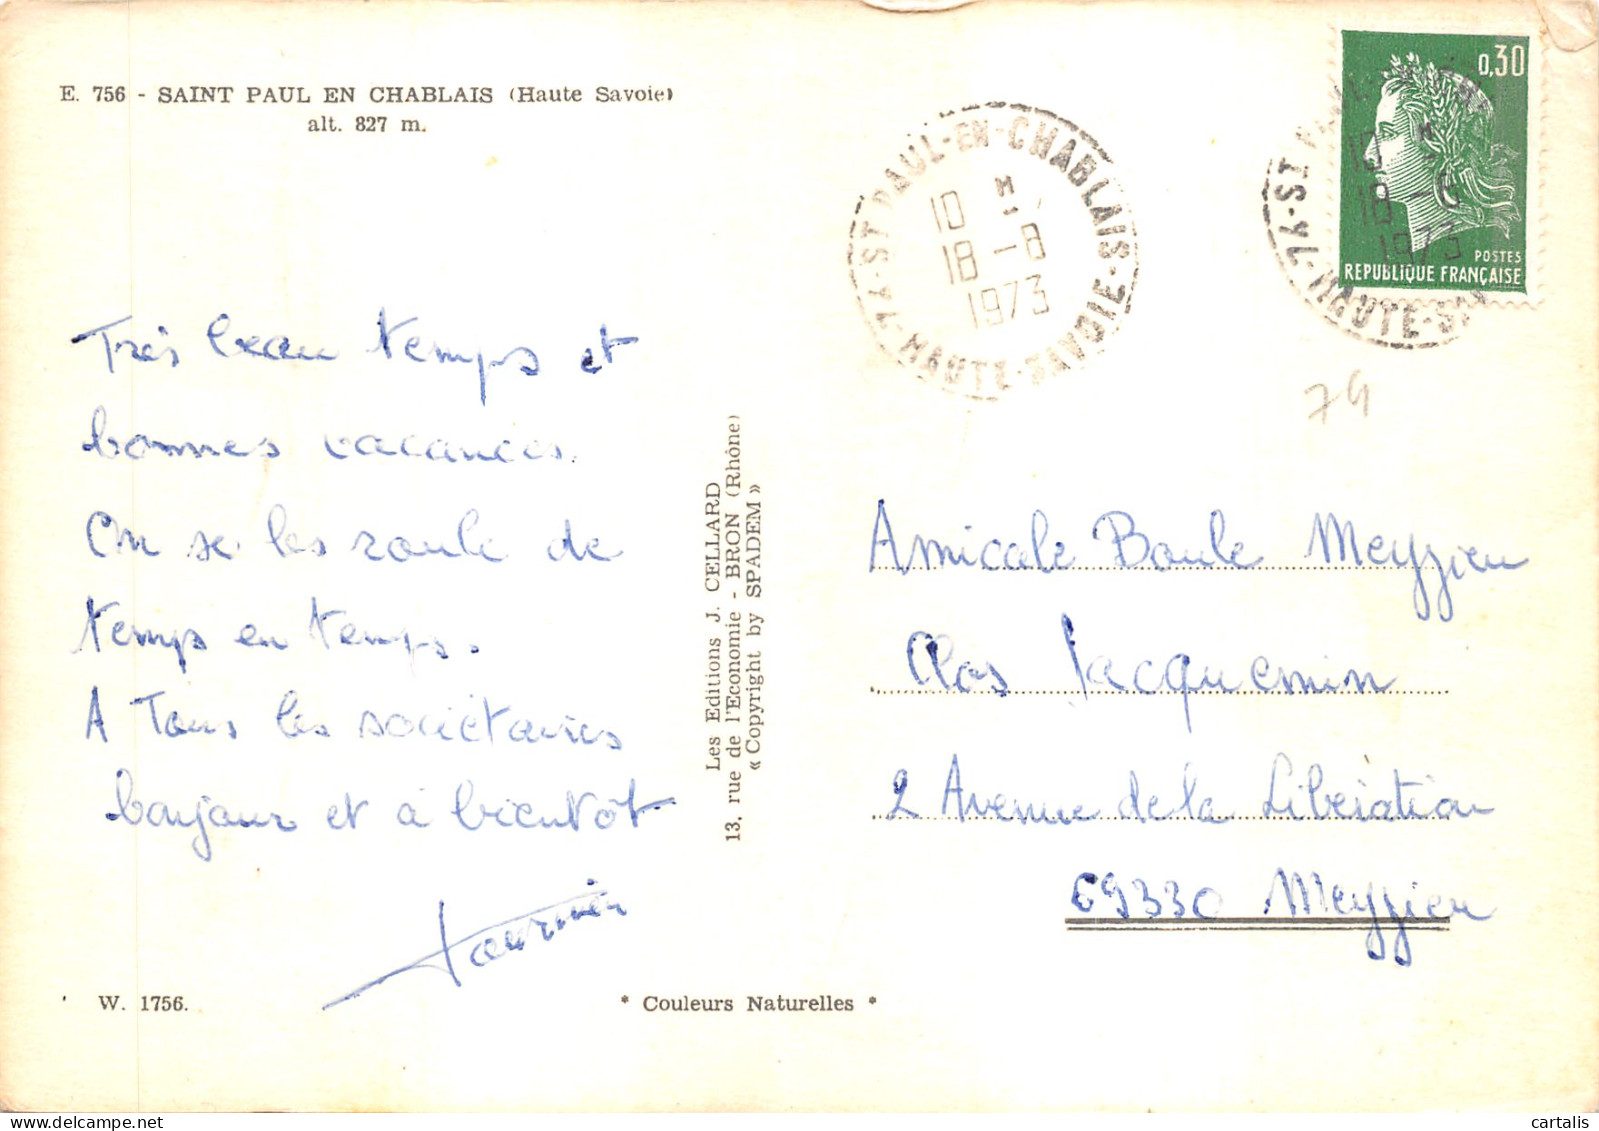 E. 756 - SAINT PAUL EN CHABLAIS (Haute Savoie)
alt. 827 m.
Très beau temps et
bonnes vacances.
On se les roule de
temps en temps.
A Tous les sociétaires
bonjour et à bientôt
Fournier
W. 1756.
* Couleurs Naturelles *
Les Editions J. CELLARD
13, rue de l'Economie - BRON (Rhône)
« Copyright by SPADEM »
74-ST PAUL-EN-CHABLAIS-HAUTE-SAVOIE
10 H
18-8
1973
0,30
POSTES
REPUBLIQUE FRANÇAISE
74-ST
HAUTE-SA
10 H
18-8
1973
74
Amicale Boule Meyzieu
Clos Jacquemin
2 Avenue de la Libération
69330 Meyzieu
cartalis